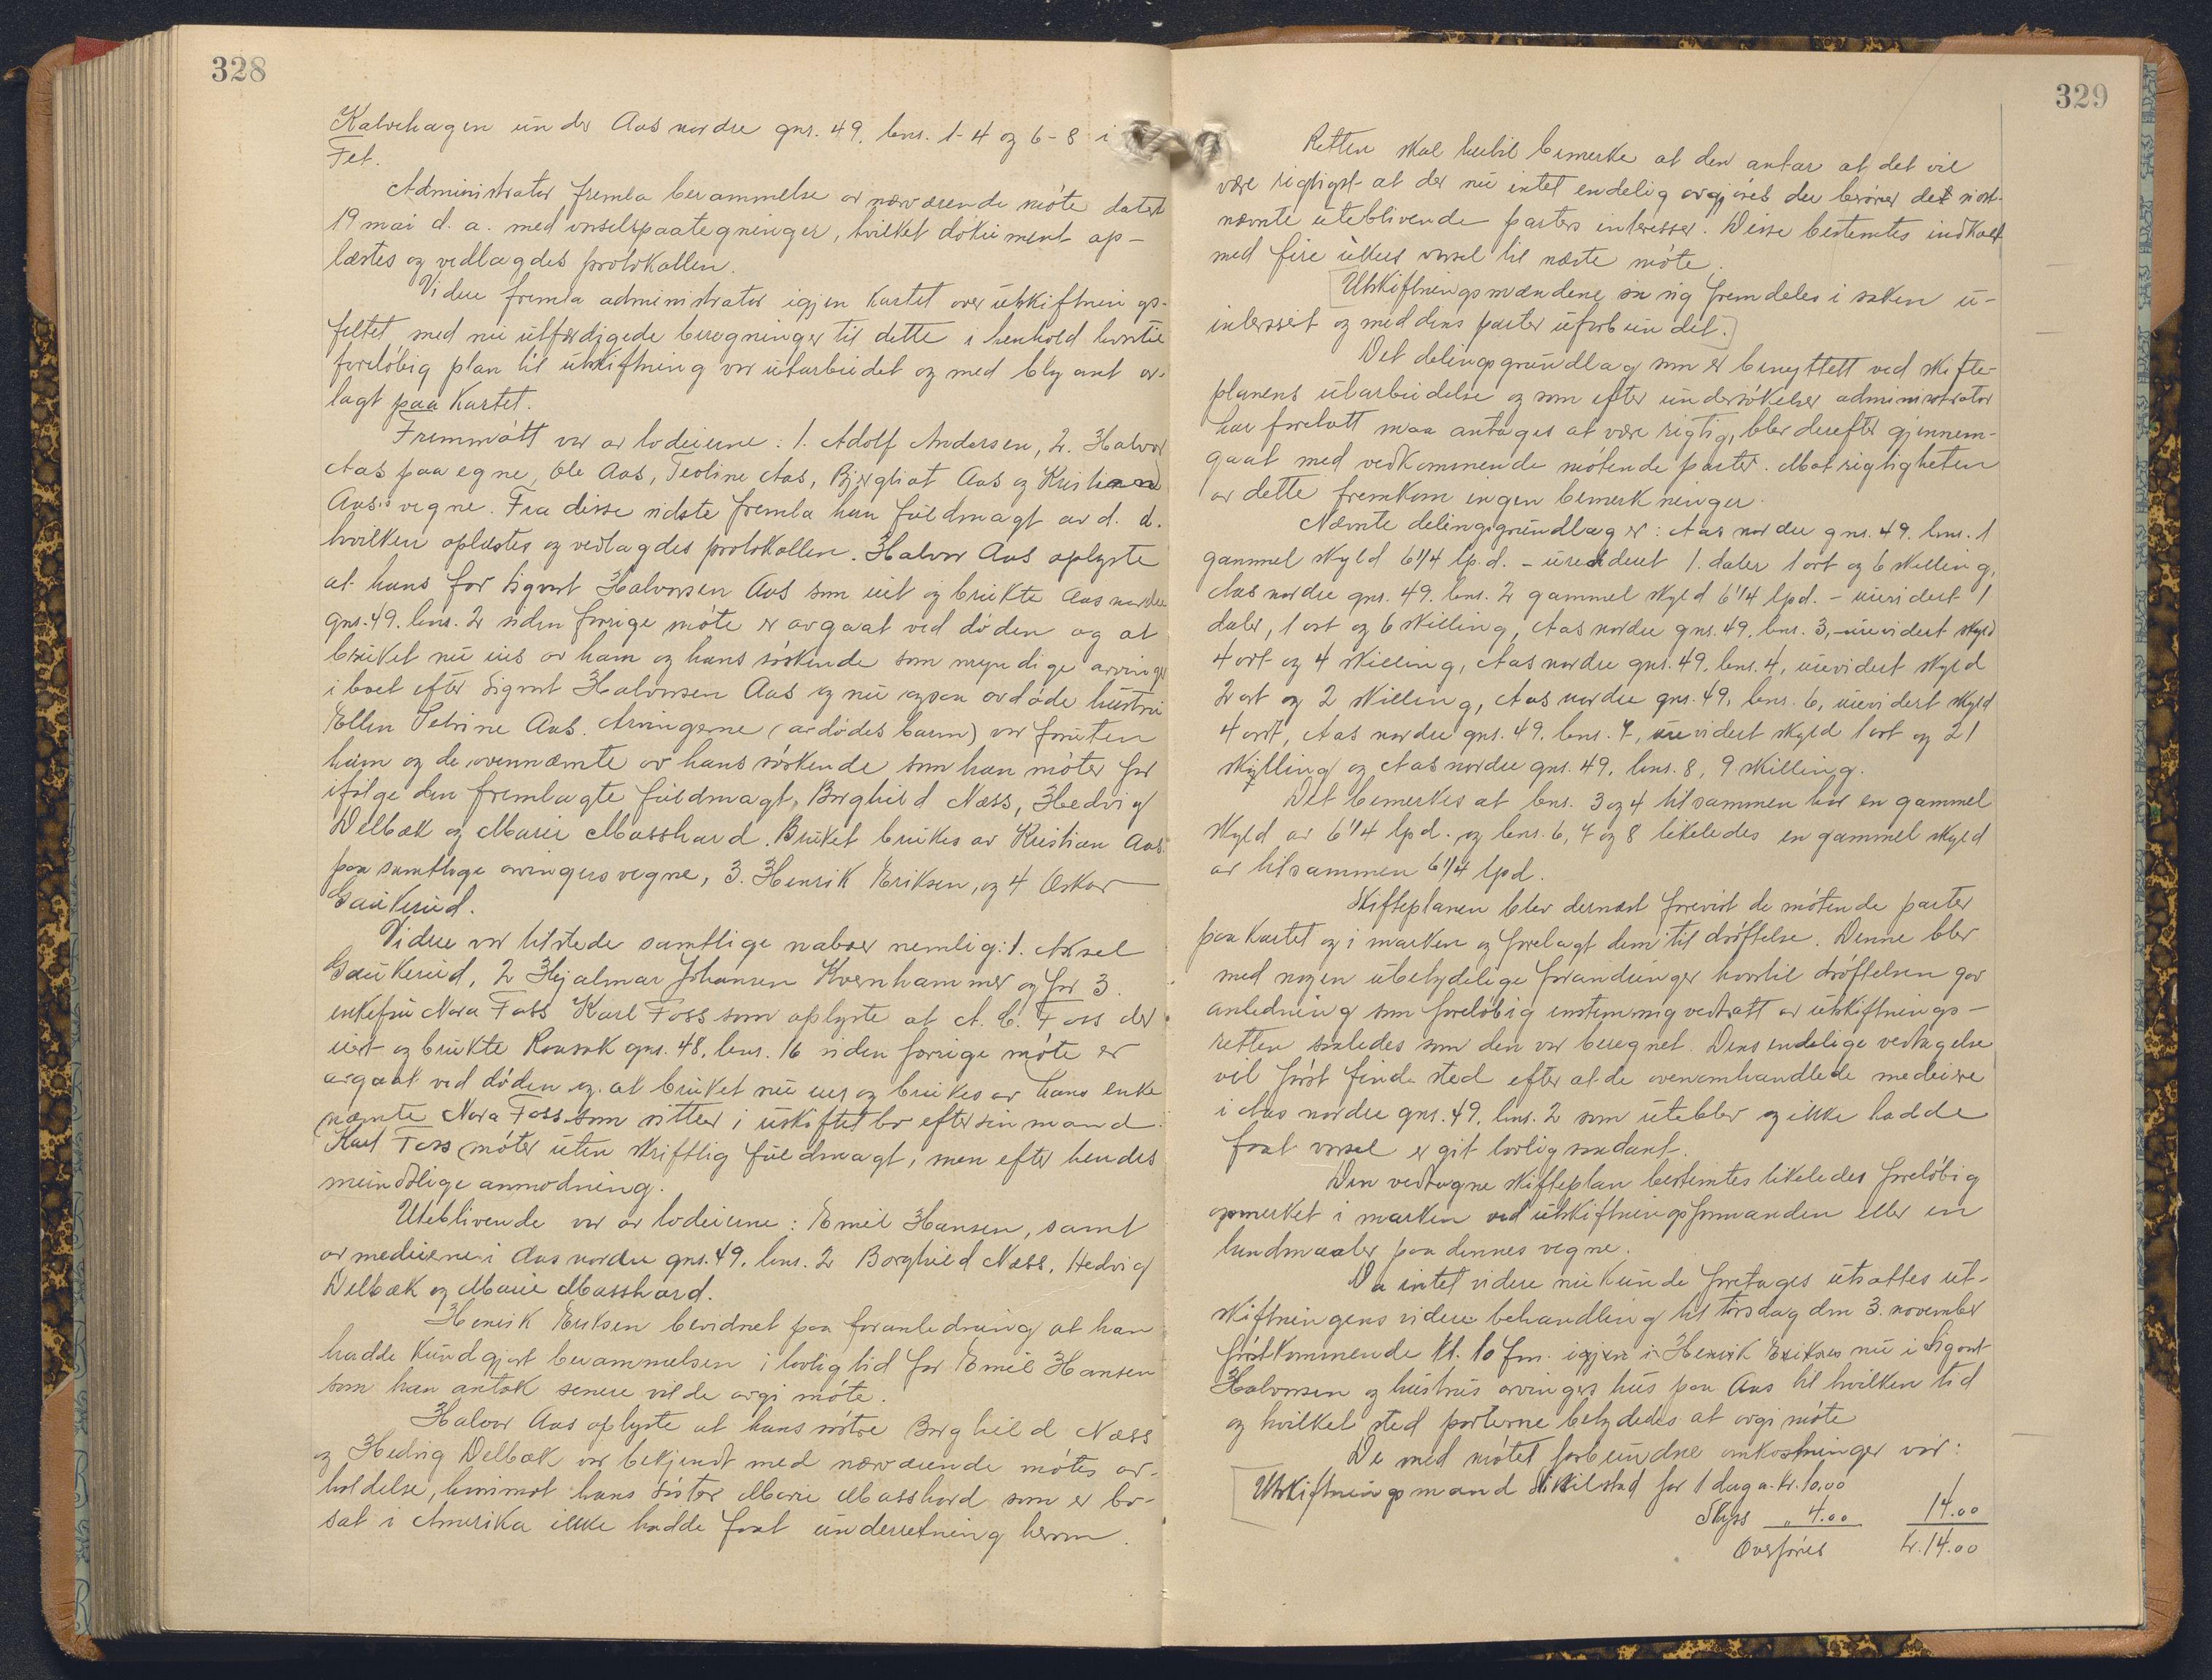 328
Kalvehagen under Aas nordre gnr. 49. bnr. 1-4 og 6-8 i
Fet.
Administrator fremla berammelse av nærværende møte datert
19 mai d. a. med varselspaategninger, hvilket dokument op-
læstes og vedlagdes protokollen.
Videre fremla administrator igjen kartet over utskiftnings-
feltet med nu utfærdigede beregninger til dette i henhold hvortil
foreløbig plan til utskiftning var utarbeidet og med blyant av-
lagt paa kartet.
Fremmøtt var av lodeierne: 1. Adolf Andersen, 2. Halvor
Aas paa egne, Ole Aas, Teoline Aas, Bjergliot Aas og Kristian
Aas's vegne. Fra disse sidste fremla han fuldmagt av d. d.
hvilken oplæstes og vedlagdes protokollen. Halvor Aas oplyste
at hans far Sigvart Halvorsen Aas som eiet og brukte Aas nordre
gnr. 49. bnr. 2 siden forrige møte er avgaat ved døden og at
bruket nu eies av ham og hans søskende som myndige arvinger
i boet efter Sigvart Halvorsen Aas og nu ogsaa avdøde hustru
Ellen Petrine Aas. Arvingerne (avdødes barn) var foruten
ham og de ovennævnte av hans søskende som han møter for
ifølge den fremlagte fuldmagt, Borghild Næss, Hedvig
Delbæk og Marie Masshard. Bruket brukes av Kristian Aas
paa samtlige arvingers vegne, 3. Henrik Eriksen, og 4 Oskar
Gaukerud.
Videre var tilstede samtlige naboer nemlig: 1. Aksel
Gaukerud, 2 Hjalmar Johansen Kvernhammer og for 3.
enkefru Nora Foss Karl Foss som oplyste at A. C. Foss der
eiet og brukte Ramsok gnr. 48. bnr. 16 siden forrige møte er
avgaat ved døden og at bruket nu eies og brukes av hans enke
nævnte Nora Foss som sitter i uskiftet bo efter sin mand.
Karl Foss møter uten skriftlig fuldmagt, men efter hendes
mundtlige anmodning.
Uteblivende var av lodeierne: Emil Hansen, samt
av medeierne i Aas nordre gnr. 49. bnr. 2 Borghild Næss, Hedvig
Delbæk og Marie Masshard.
Henrik Eriksen bevidnet paa foranledning at han
hadde kundgjort berammelsen i lovlig tid for Emil Hansen
som han antok senere vilde avgi møte.
Halvor Aas oplyste at hans søstre Borghild Næss
og Hedvig Delbæk var bekjendt med nærværende møtes av-
holdelse, hvorimot hans søster Marie Masshard som er bo-
sat i Amerika ikke hadde faat underretning herom.
329
Retten skal hertil bemerke at den antar at det vil
være rigtigst at der nu intet endelig avgjøres der berører det sidst-
nævnte uteblivende parters interesser. Disse bestemtes indkalt
med fire ukers varsel til næste møte.
Utskiftningsmændene sa sig fremdeles i saken u-
interssert og med dens parter uforbundet.
Det delingsgrundlag som er benyttett ved skifte-
planens utarbeidelse og som efter undersøkelser administrator
har foretatt maa antages at være rigtig, blev derefter gjennem-
gaat med vedkommende møtende parter. Mot rigtigheten
av dette fremkom ingen bemerkninger.
Nævnte delingsgrundlag er: Aas nordre gnr. 49. bnr. 1
gammel skyld 6 1/4 lp.d. - urevidert 1. daler 1 ort og 6 skilling,
Aas nordre gnr. 49. bnr. 2 gammel skyld 6 1/4 lpd. - urevidert 1
daler, 1 ort og 6 skilling, Aas nordre gnr. 49. bnr. 3, urevidert skyld
4 ort og 4 skilling, Aas nordre gnr. 49. bnr. 4, urevidert skyld
2 ort og 2 skilling, Aas nordre gnr. 49. bnr. 6, urevidert skyld
4 ort, Aas nordre gnr. 49. bnr. 7, urevidert skyld 1 ort og 21
skilling og Aas nordre gnr. 49. bnr. 8, 9 skilling.
Det bemerkes at bnr. 3 og 4 tilsammen har en gammel
skyld av 6 1/4 lpd. og bnr. 6, 7 og 8 likeledes en gammel skyld
av tilsammen 6 1/4 lpd.
Skifteplanen blev dernæst forevist de møtende parter
paa kartet og i marken og forelagt dem til drøftelse. Denne blev
med nogen ubetydelige forandringer hvortil drøftelsen gav
anledning som foreløbig enstemmig vedtatt av utskiftnings-
retten saaledes som den var beregnet. Dens endelige vedtagelse
vil først finde sted efter at de ovenomhandlede medeiere
i Aas nordre gnr. 49. bnr. 2 som uteblev og ikke hadde
faat varsel er git lovlig saadant.
Den vedtagne skifteplan bestemtes likeledes foreløbig
opmerket i marken ved utskiftningsformanden eller en
landmaaler paa dennes vegne.
Da intet videre nu kunde foretages utsattes ut-
skiftningens videre behandling til torsdag den 3. november
førstkommende kl. 10 fm. igjen i Henrik Eriksen nu i Sigvart
Halvorsen og hustrus arvingers hus paa Aas til hvilken tid
og hvilket sted parterne betydedes at avgi møte
De med møtet forbundne omkostninger var:
Utskiftningsmand Skilstad for 1 dag a. kr. 10.00
Skyss „ 4.00 14.00
Overføres kr. 14.00